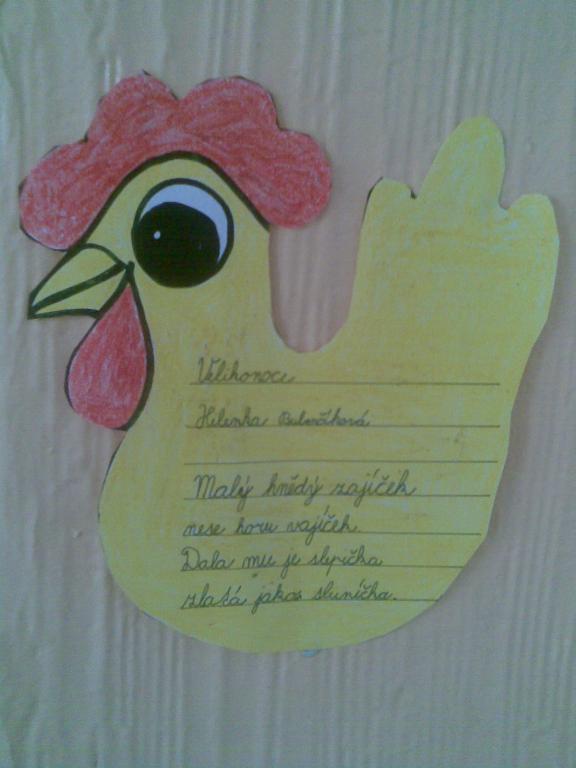 Velikonoce
Helenka
Malý hnědý zajíček
nese horu vajíček.
Dala mu je slepička
zlatá jako sluníčka.